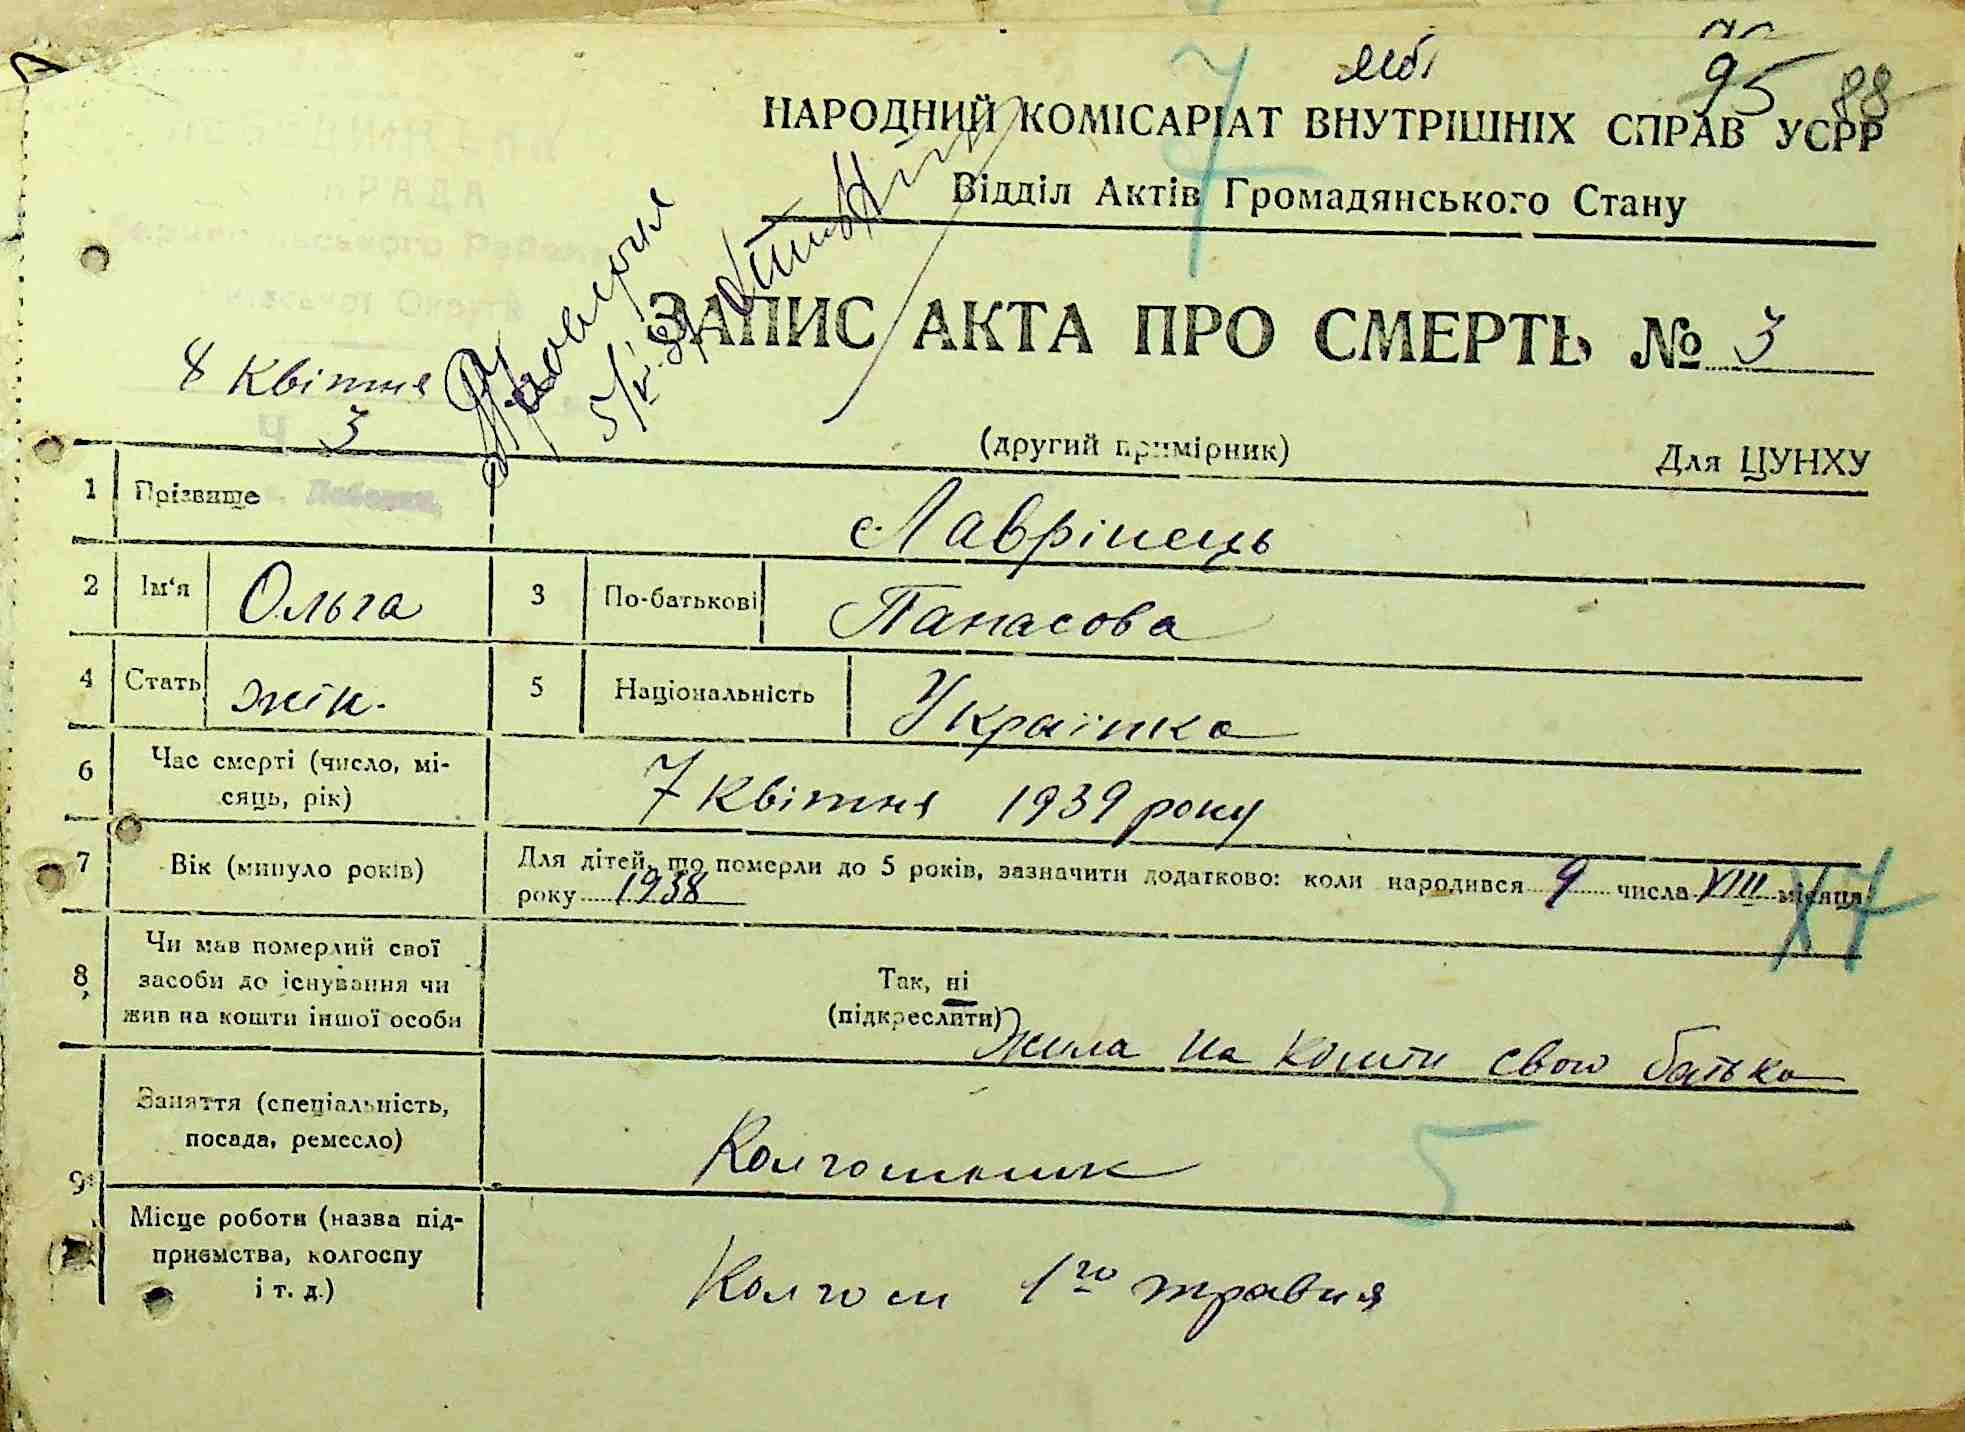 95 88
НАРОДНИЙ КОМІСАРІАТ ВНУТРІШНІХ СПРАВ УСРР
7
Відділ Актів Громадянського Стану
РАДА
ЗАПИС АКТА ПРО СМЕРТЬ № 3
8 Квітня
Ч 3
(другий примірник) Для ЦУНХУ
1 Прізвище Лаврінець
2 Ім'я Ольга 3 По-батькові Панасова
4 Стать жін. 5 Національність Українка
6 Час смерті (число, мі-
сяць, рік) 7 квітня 1939 року
7 Вік (минуло років) Для дітей, що померли до 5 років, зазначити додатково: коли народився 9 числа VIII місяця
року 1938
8 Чи мав померлий свої
засоби до існування чи
жив на кошти іншої особи
Так, ні
(підкреслити)
Жила на кошти свого батька
9 Заняття (спеціальність,
посада, ремесло) Колгошник
5
Місце роботи (назва під-
приємства, колгоспу
і т. д.) Колгосп 1го травня